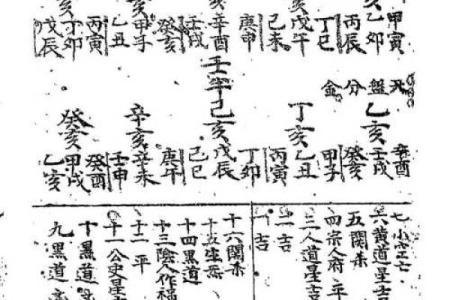 甲寅
亥乙卯
丙辰
丁巳
亥戊午
己未
庚申
辛酉
壬戌
癸亥
甲子
乙丑
丙寅
亥丁卯
戊辰
盤分金
辛酉
乙亥壬戌
癸亥
甲子
丁亥乙丑
丙寅
丁卯
己亥戊辰
己巳
庚午
辛亥辛未
壬申
癸酉
癸亥甲戌
乙亥
七小
六黄道星吉
五関
四宗人府年
三人道星吉
二吉
一吉
十六関
十五
十四黒道
十三險人作福
十二平
十一公吏星
十黒道
九黒道